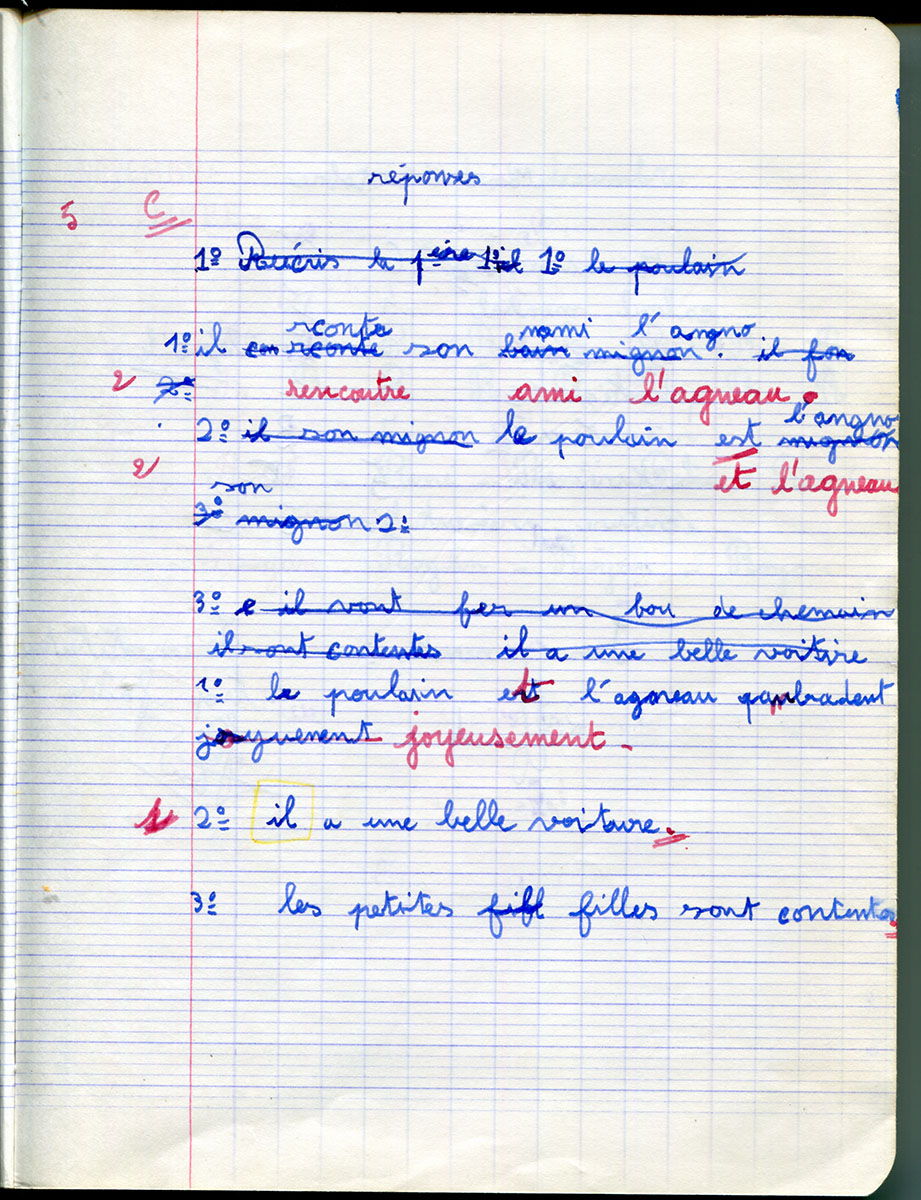 réponses
5 C
1º Réécris la 1ère 1º il 1º le poulain
rconte nami l'angno
1º il con rconte son bain mignon. il fon
2 2º rencontre ami l'agneau.
l'angno
2º il son mignon le poulain est mignon
2 son et l'agneau
3º mignon 2º
3º e il vont fer un bou de chemain
il sont contentes il a une belle voitire
1º le poulain et l'agneau gambradent
joyeusement.
1 2º il a une belle voiture.
3º les petites fill filles sont contentes